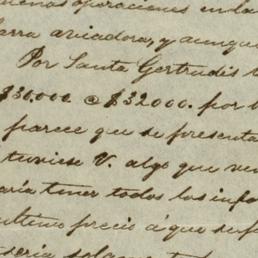 buenas operaciones en la
barra aviadora, y aunque
Por Santa Gertrudis
$30.000 @ $32000. por
parece que se presenta
tuviese V. algo que ven
aría tener todos los info
último precio á que se p
sería